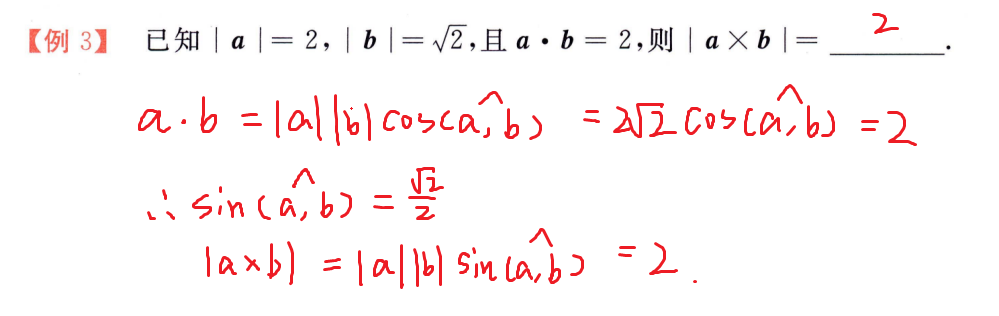 【例 3】 已知 | a | = 2, | b | = √2, 且 a · b = 2, 则 | a × b | = 2.
a · b = |a||b| cos(a,^b) = 2√2 cos(a,^b) = 2
∴ sin(a,^b) = √2/2
|a×b| = |a||b| sin(a,^b) = 2.